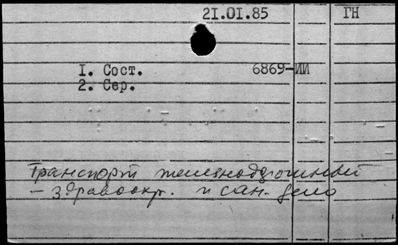 21.01.85 ГН
1. Сост. 6869-ИИ
2. Сер.
Транспорт железнодорожный
– здравоохр. и сан. дело